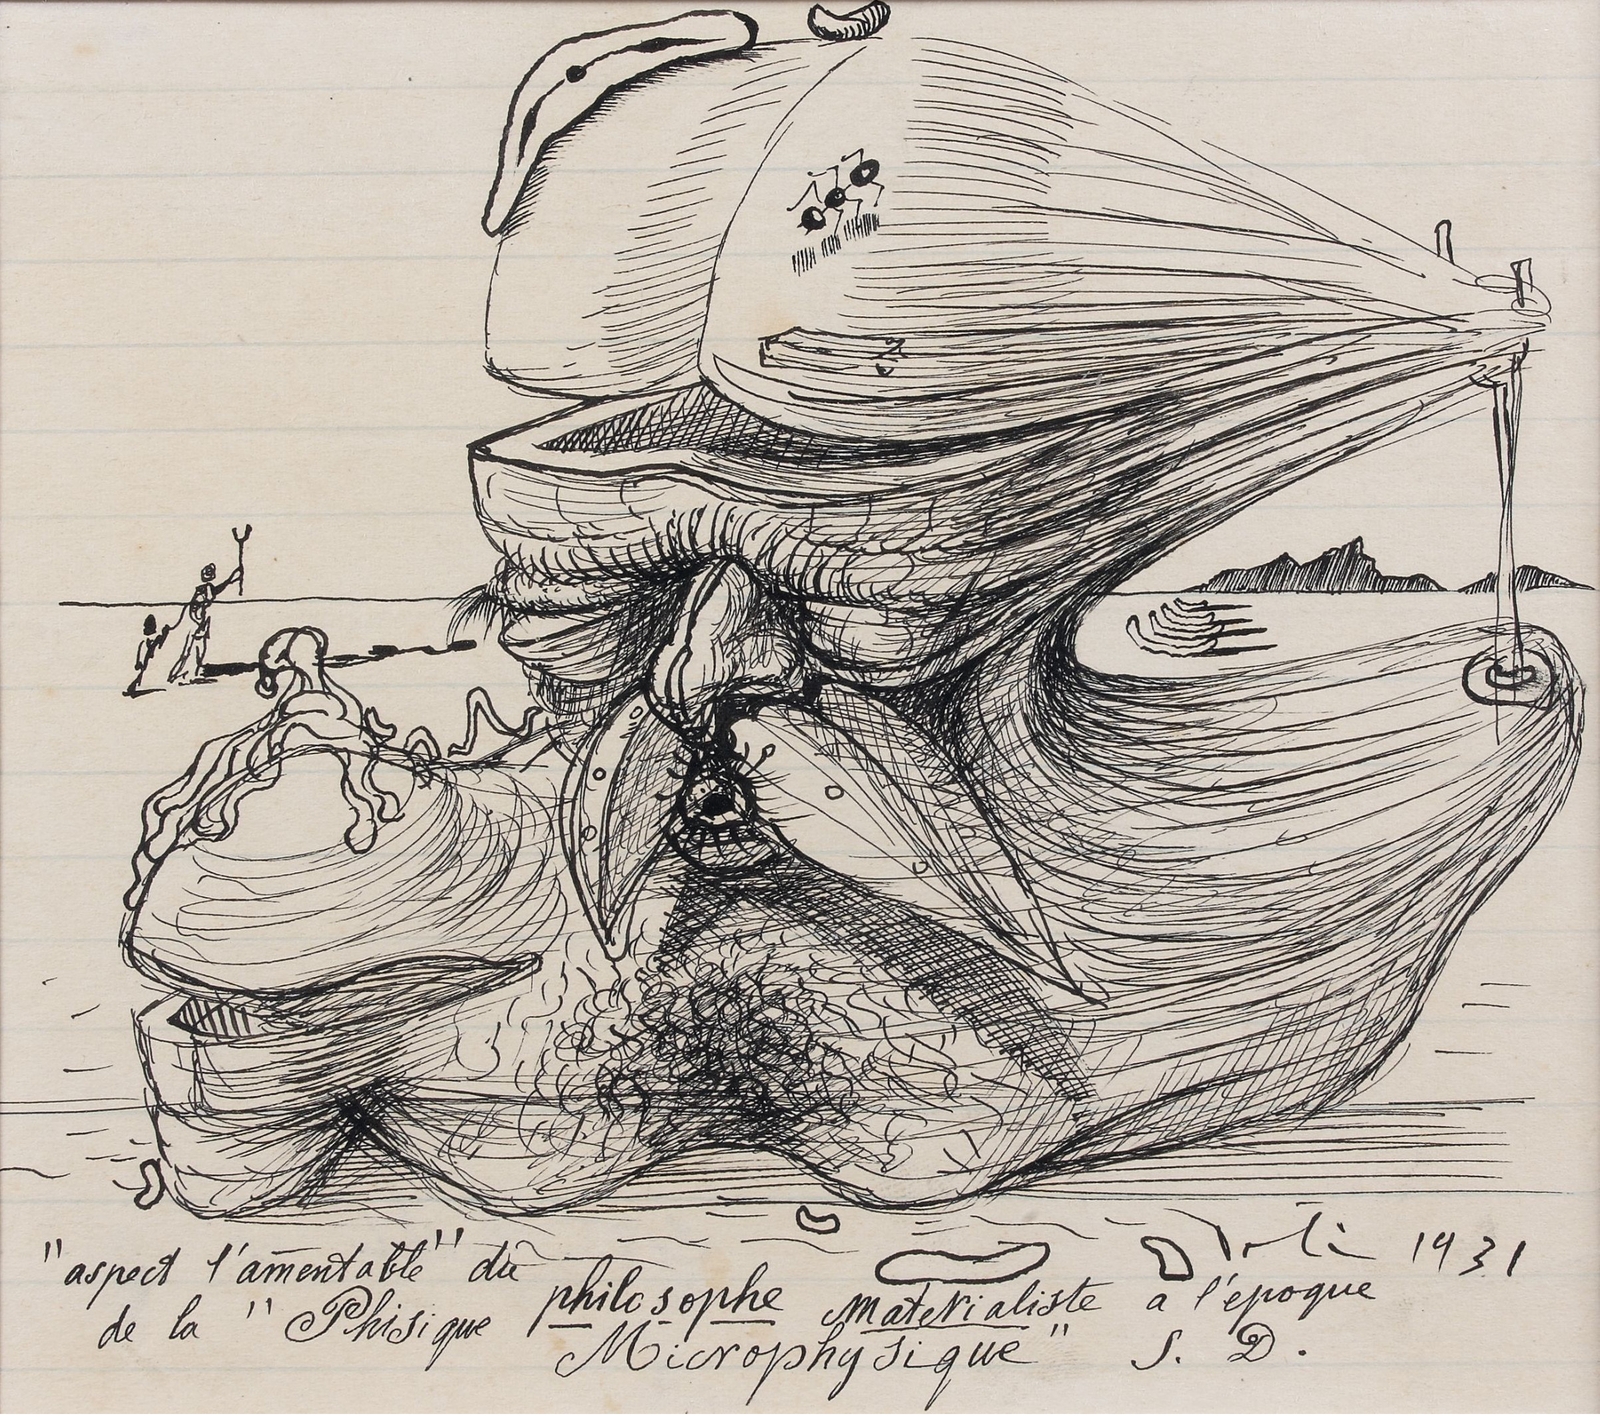 Dalí 1931
"aspect l'amentable" du philosophe materialiste a l'époque
de la "Phisique Microphysique" S. D.